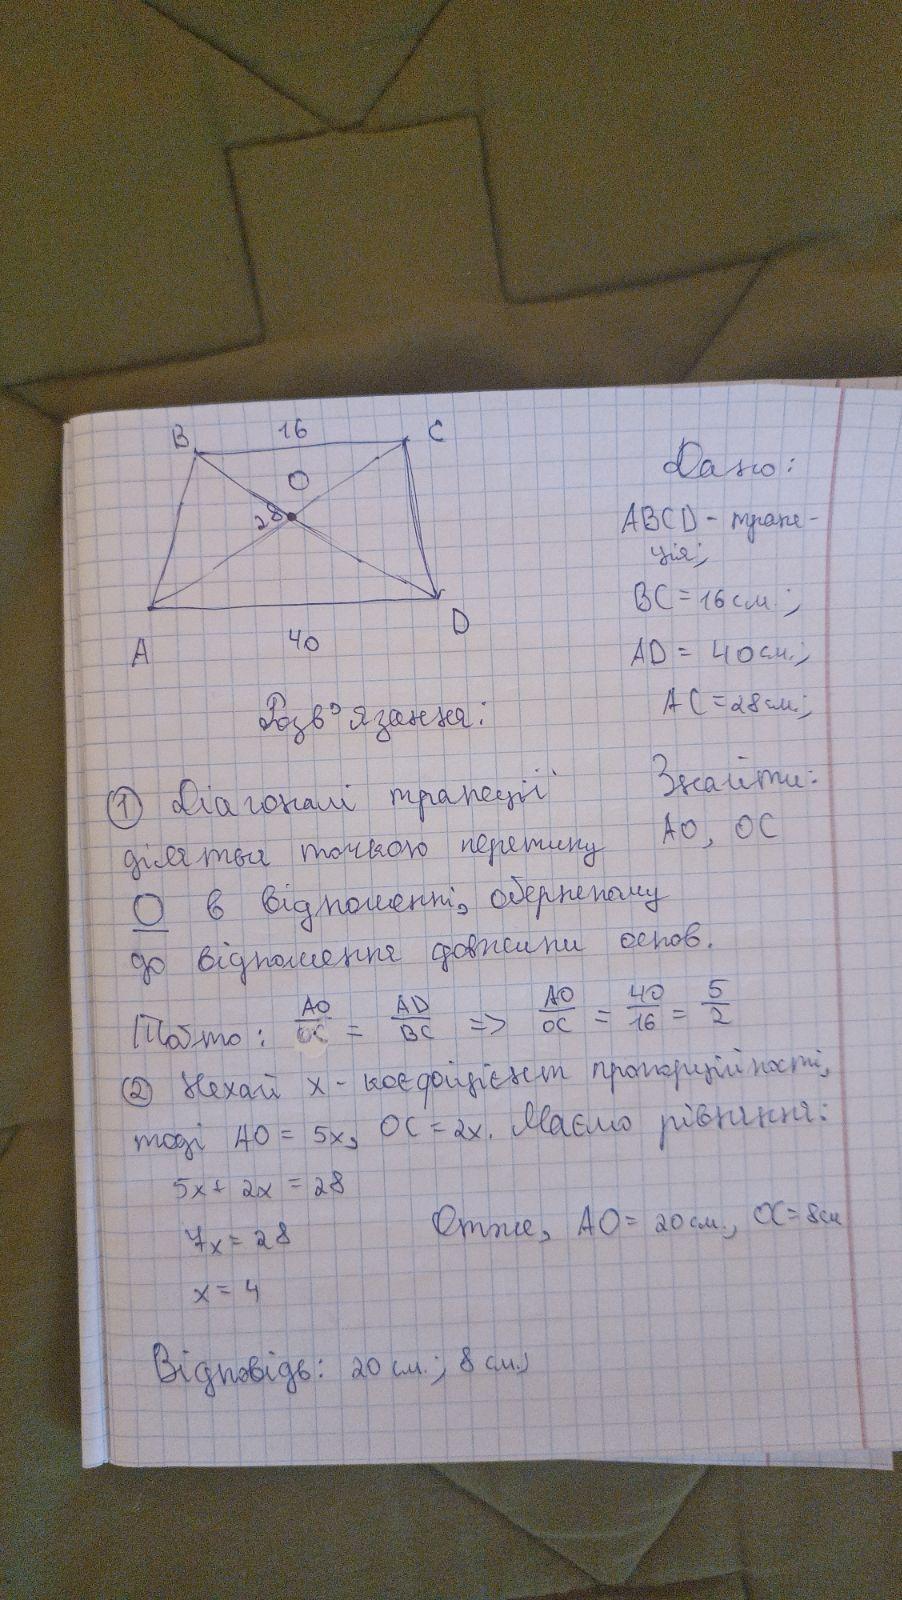 B 16 C
O
28
A 40 D
Дано:
ABCD - трапе-
ція;
BC = 16 см.;
AD = 40 см.;
AC = 28 см.;
Знайти:
AO, OC
Розв'язання:
① Діагоналі трапеції
діляться точкою перетину
O в відношенні, оберненому
до відношення довжини основ.
Тобто: AO/OC = AD/BC => AO/OC = 40/16 = 5/2
② Нехай x - коефіцієнт пропорційності,
тоді AO = 5x, OC = 2x. Маємо рівняння:
5x + 2x = 28
7x = 28
x = 4
Отже, AO = 20 см., OC = 8 см
Відповідь: 20 см.; 8 см.;